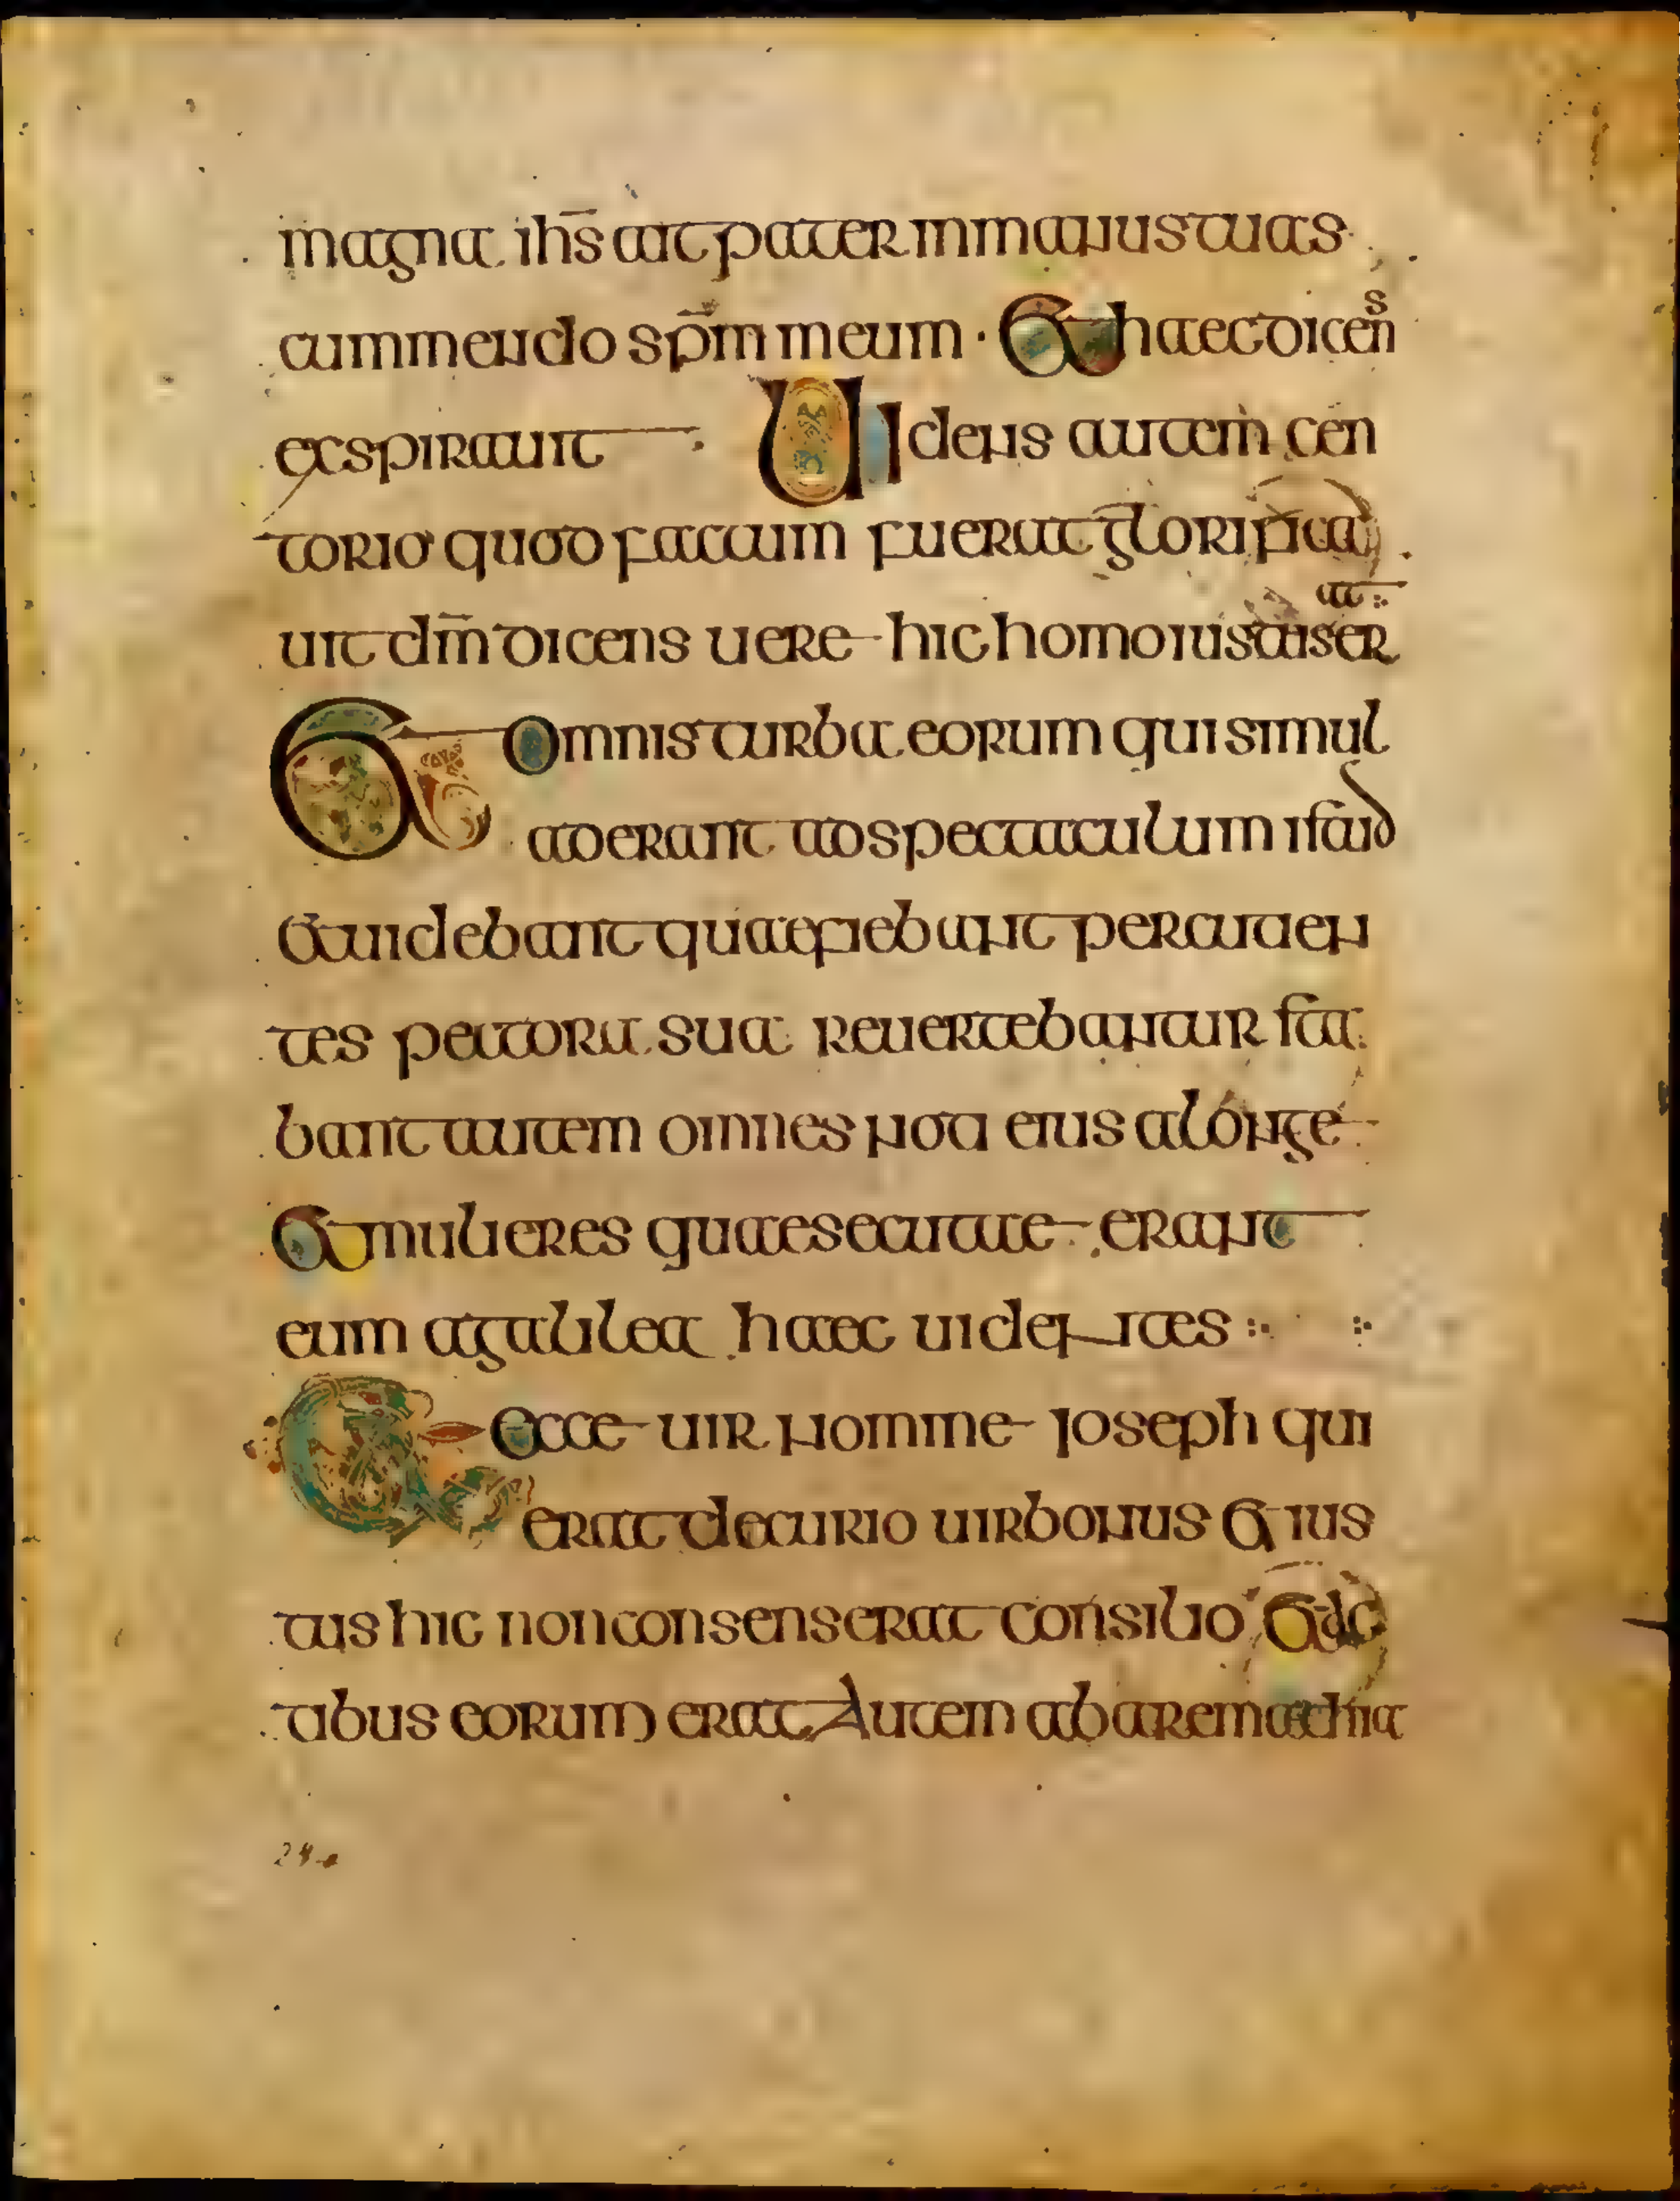 magna ihs̄ ait pater in manus tuas
cummendo sp̄m meum · Et haec dicens
exspirauit Uidens autem cen
torio quod factum fuerat glorifica
uit dm̄ dicens uere hic homo iustus erat
Et omnis turba eorum qui simul
aderant ad spectaculum istud
et uidebant quae fiebant percutien
tes pectora sua reuertebantur sta
bant autem omnes noti eius a longe
Et mulieres quae secutae erant
eum a galilea haec uidentes
Et ecce uir nomine ioseph qui
erat decurio uir bonus et ius
tus hic non consenserat consilio et ac
tibus eorum erat Autem ab aremathia